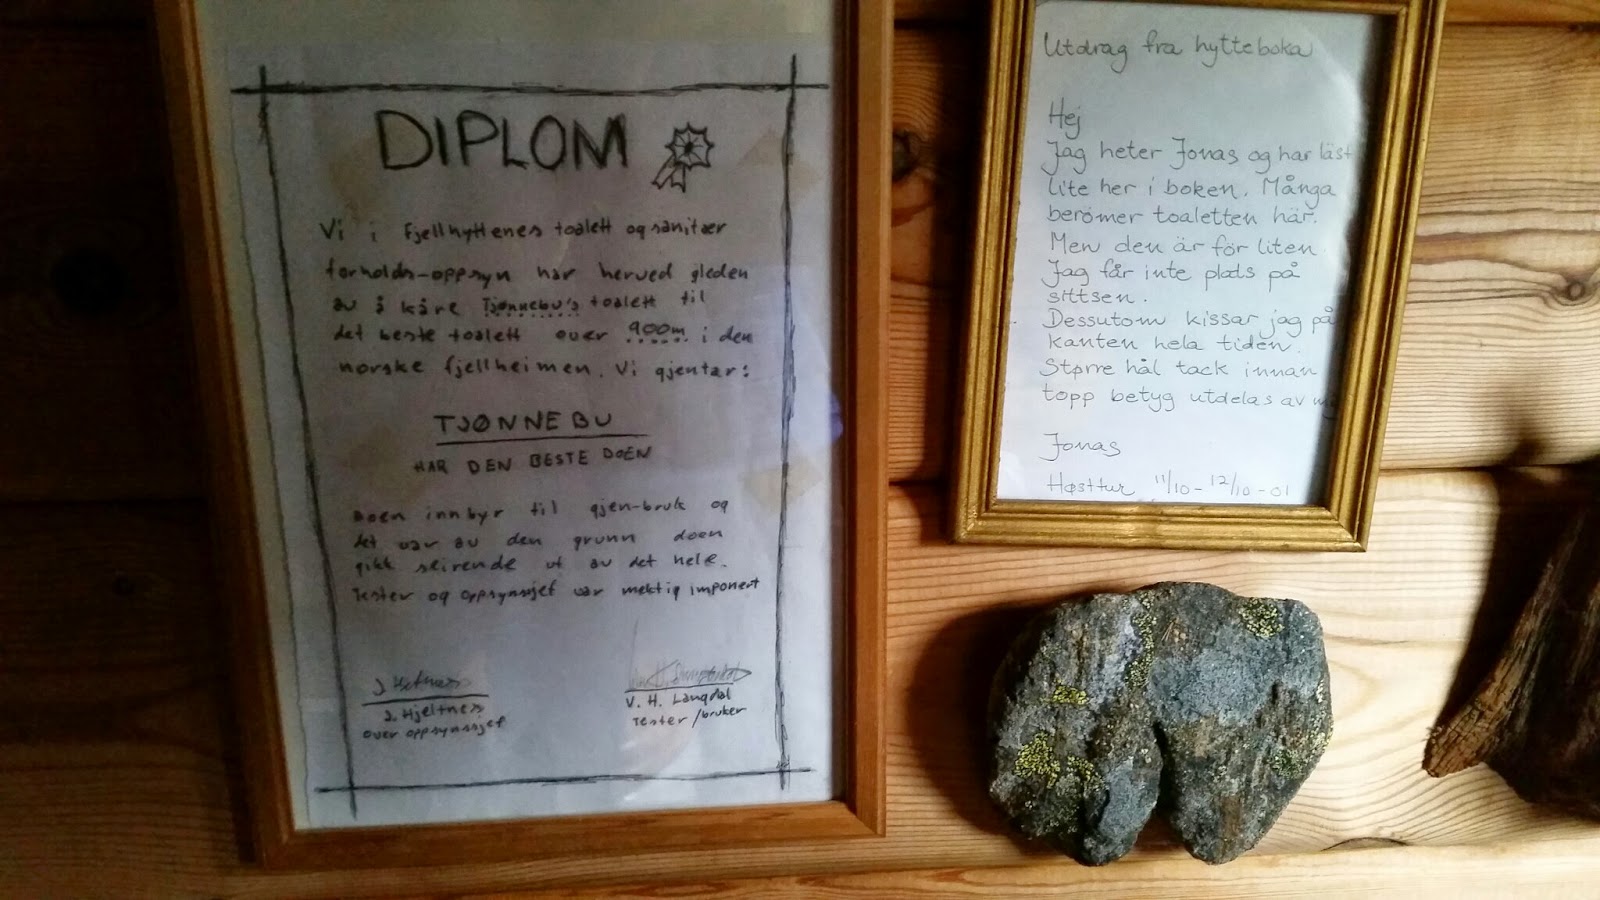 DIPLOM
Vi i Fjellhyttenes toalett og sanitær
forholds-oppsyn har herved gleden
av å kåre Tjønnebu's toalett til
det beste toalett over 900m i den
norske fjellheimen. Vi gjentar:
TJØNNEBU
HAR DEN BESTE DOEN
Doen innbyr til gjen-bruk og
det var av den grunn doen
gikk seirende ut av det hele.
Tester og oppsynssjef var mektig imponert
J. Hjeltness
over oppsynssjef
V. H. Langdal
Tester/bruker
Utdrag fra hytteboka
Hej
Jag heter Jonas og har läst
lite her i boken. Många
berömer toaletten här.
Men den är för liten
Jag får inte plats på
sittsen.
Dessutom kissar jag på
kanten hela tiden.
Større hål tack innan
topp betyg utdelas av
Jonas
Høsttur 11/10 - 12/10 - 01